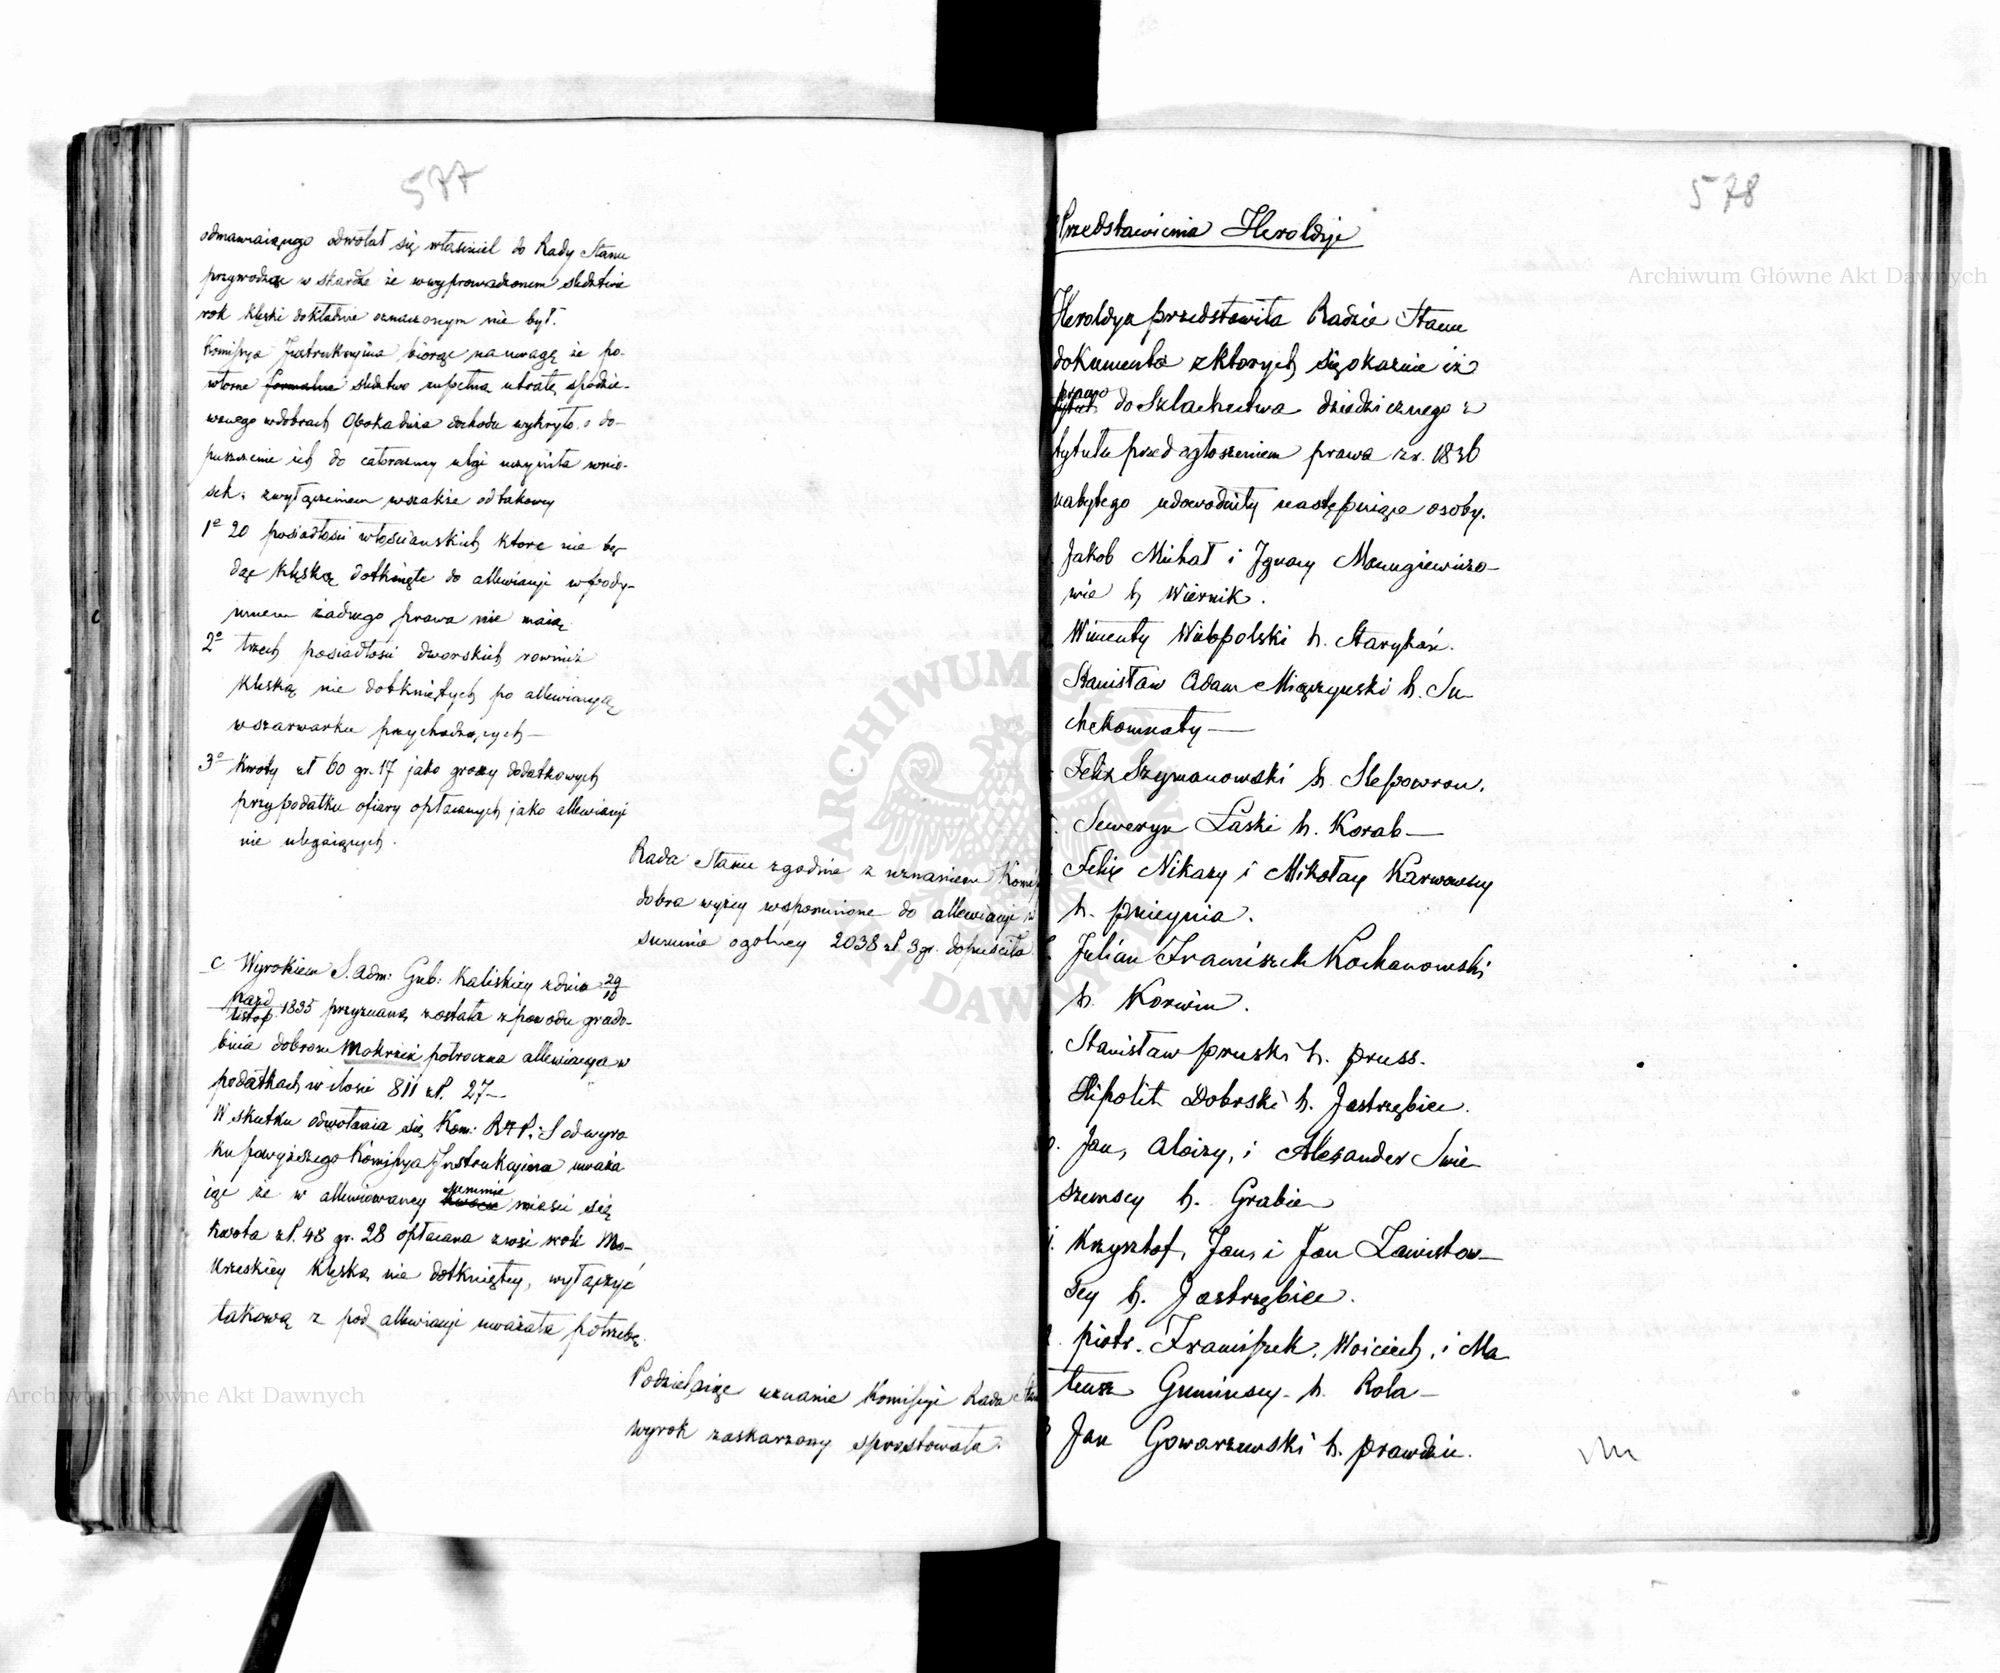 577
odmawiaiącego odwołał się właściciel do Rady Stanu
przywodząc w skardze że w wyprowadzonem śledztwie
rok klęski dokładnie oznaczonym nie był.
Komissya Instrukcyjna biorąc na uwagę że po-
wtorne formalne śledztwo zupełną utratę spodzie-
wanego w dobrach dochodu wykryło, o do-
puszczenie ich do całoroczney ulgi uczyniła wnio-
sek; z wyłączeniem wszakże od takowey
1e 20 posiadłości włościańskich ktore nie bę-
dąc klęską dotknięte do allewiacyi w pody-
mnem żadnego prawa nie maią
2e trzech posiadłości dworskich rownież
klęską nie dotkniętych po allewiacyą
w szarwarku przychodzących—
3e kwoty zł 60 gr. 17 jako groszy dodatkowych
przy podatku ofiary opłacanych jako allewiacyi
nie ulegaiących.
Rada Stanu zgodnie z uznaniem Komis
dobra wyżey wspomnione do allewiacyi w
summie ogolney 2038 zł. 3 gr. dopuściła
c Wyrokiem S. Adm: Gub: Kaliskiey z dnia 29/10
pazd/listop 1835 przyznaną została z powodu grado-
bicia dobrom półroczna allewiacya w
podatkach w ilości 811 zł. 27—
W skutku odwołania się Kom: R.P. i S od wyro
ku powyższego Komissya Instrukcyina uważa
iąc że w allewiowaney summie kwocie mieści się
kwota zł. 48 gr. 28 opłacana z wsi woli Mo-
krzeskiey klęską nie dotkniętey, wyłączyć
takową z pod allewiacyi uważała potrzebę.
Podzielaiąc uznanie Komissyi Rada Stanu
wyrok zaskarzony sprostowała.
578
Przedstawienia Heroldyi
Heroldya przedstawiła Radzie Stanu
dokumenta z ktorych się okazuie iż
prawo
tytuł do Szlachectwa dziedzicznego z
tytułu przed ogłoszeniem prawa z r. 1836
nabytego udowodniły następuiące osoby.
Jakob Michał i Ignacy Manugiewiczo-
wie h Wiernik.
Wincenty Wielopolski h. Starykoń.
Stanisław Adam Miączyński h. Su-
chekomnaty—
Felix Szymanowski h. Slepowron.
Seweryn Łaski h. Korab—
Felix Nikazy i Mikołay Karwowscy
h. Pnieynia.
Julian Franciszek Kochanowski
h. Korwin.
Stanisław Pruski h. Pruss.
Hipolit Dobrski h. Jastrzębiec.
Jan, Aloizy, i Alexander Swie
szewscy h. Grabie
Krzysztof, Jan, i Jan Zawistow—
scy h. Jastrzębiec.
Piotr. Franciszek, Woiciech, i Ma
teusz Guminscy h. Rola—
Jan Gowarzewski h. Prawdzic.
Archiwum Główne Akt Dawnych
Archiwum Główne Akt Dawnych
ARCHIWUM GŁÓWNE AKT DAWNYCH